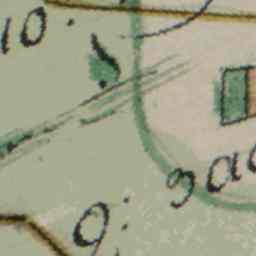 10.
9: зад